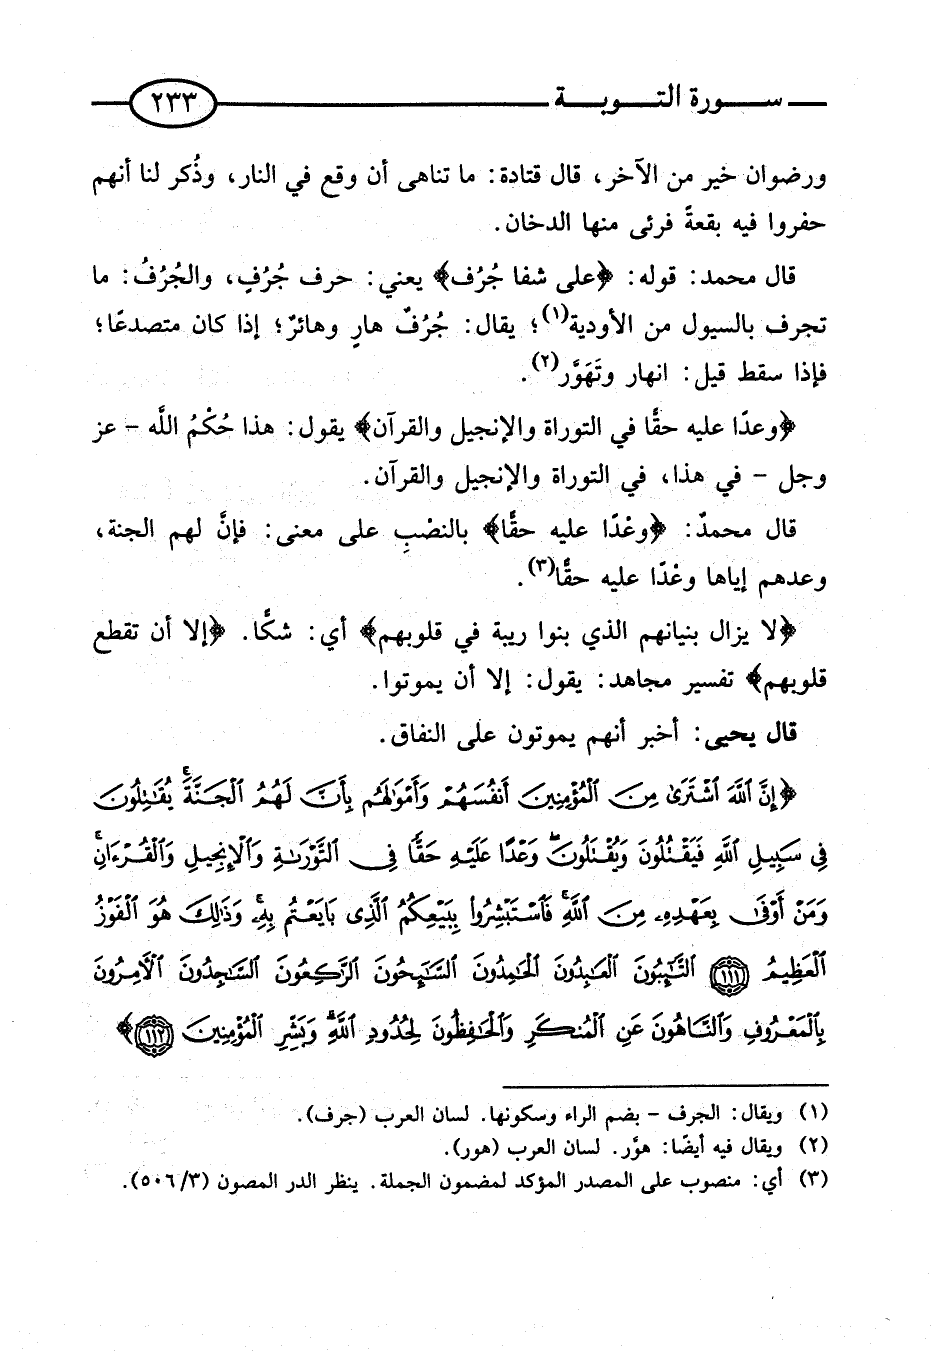 سورة التوبة ٢٣٣
ورضوان خير من الآخر، قال قتادة: ما تناهى أن وقع في النار، وذُكر لنا أنهم
حفروا فيه بقعةً فرئى منها الدخان.
قال محمد: قوله: ﴿على شفا جُرُف﴾ يعني: حرف جُرُفٍ، والجُرُفُ: ما
تجرف بالسيول من الأودية(١)؛ يقال: جُرُفٌ هارٍ وهائرٌ؛ إذا كان متصدعًا؛
فإذا سقط قيل: انهار وتَهَوَّر(٢).
﴿وعدًا عليه حقًّا في التوراة والإنجيل والقرآن﴾ يقول: هذا حُكْمُ اللَّه - عز
وجل - في هذا، في التوراة والإنجيل والقرآن.
قال محمدٌ: ﴿وعْدًا عليه حقًّا﴾ بالنصْبِ على معنى: فإنَّ لهم الجنة،
وعدهم إياها وعْدًا عليه حقًّا(٣).
﴿لا يزال بنيانهم الذي بنوا ريبة في قلوبهم﴾ أي: شكًّا. ﴿إلا أن تقطع
قلوبهم﴾ تفسير مجاهد: يقول: إلا أن يموتوا.
قال يحيى: أخبر أنهم يموتون على النفاق.
﴿إِنَّ اللَّهَ ٱشْتَرَىٰ مِنَ ٱلْمُؤْمِنِينَ أَنفُسَهُمْ وَأَمْوَٰلَهُم بِأَنَّ لَهُمُ ٱلْجَنَّةَۚ يُقَٰتِلُونَ
فِي سَبِيلِ ٱللَّهِ فَيَقْتُلُونَ وَيُقْتَلُونَۖ وَعْدًا عَلَيْهِ حَقًّا فِي ٱلتَّوْرَىٰةِ وَٱلْإِنجِيلِ وَٱلْقُرْءَانِۚ
وَمَنْ أَوْفَىٰ بِعَهْدِهِۦ مِنَ ٱللَّهِۚ فَٱسْتَبْشِرُوا۟ بِبَيْعِكُمُ ٱلَّذِي بَايَعْتُم بِهِۦۚ وَذَٰلِكَ هُوَ ٱلْفَوْزُ
ٱلْعَظِيمُ ١١١ ٱلتَّٰٓئِبُونَ ٱلْعَٰبِدُونَ ٱلْحَٰمِدُونَ ٱلسَّٰٓئِحُونَ ٱلرَّٰكِعُونَ ٱلسَّٰجِدُونَ ٱلْءَامِرُونَ
بِٱلْمَعْرُوفِ وَٱلنَّاهُونَ عَنِ ٱلْمُنكَرِ وَٱلْحَٰفِظُونَ لِحُدُودِ ٱللَّهِۗ وَبَشِّرِ ٱلْمُؤْمِنِينَ ١١٢﴾
(١) ويقال: الجرف - بضم الراء وسكونها. لسان العرب (جرف).
(٢) ويقال فيه أيضًا: هوَّر. لسان العرب (هور).
(٣) أي: منصوب على المصدر المؤكد لمضمون الجملة. ينظر الدر المصون (٥٠٦/٣).